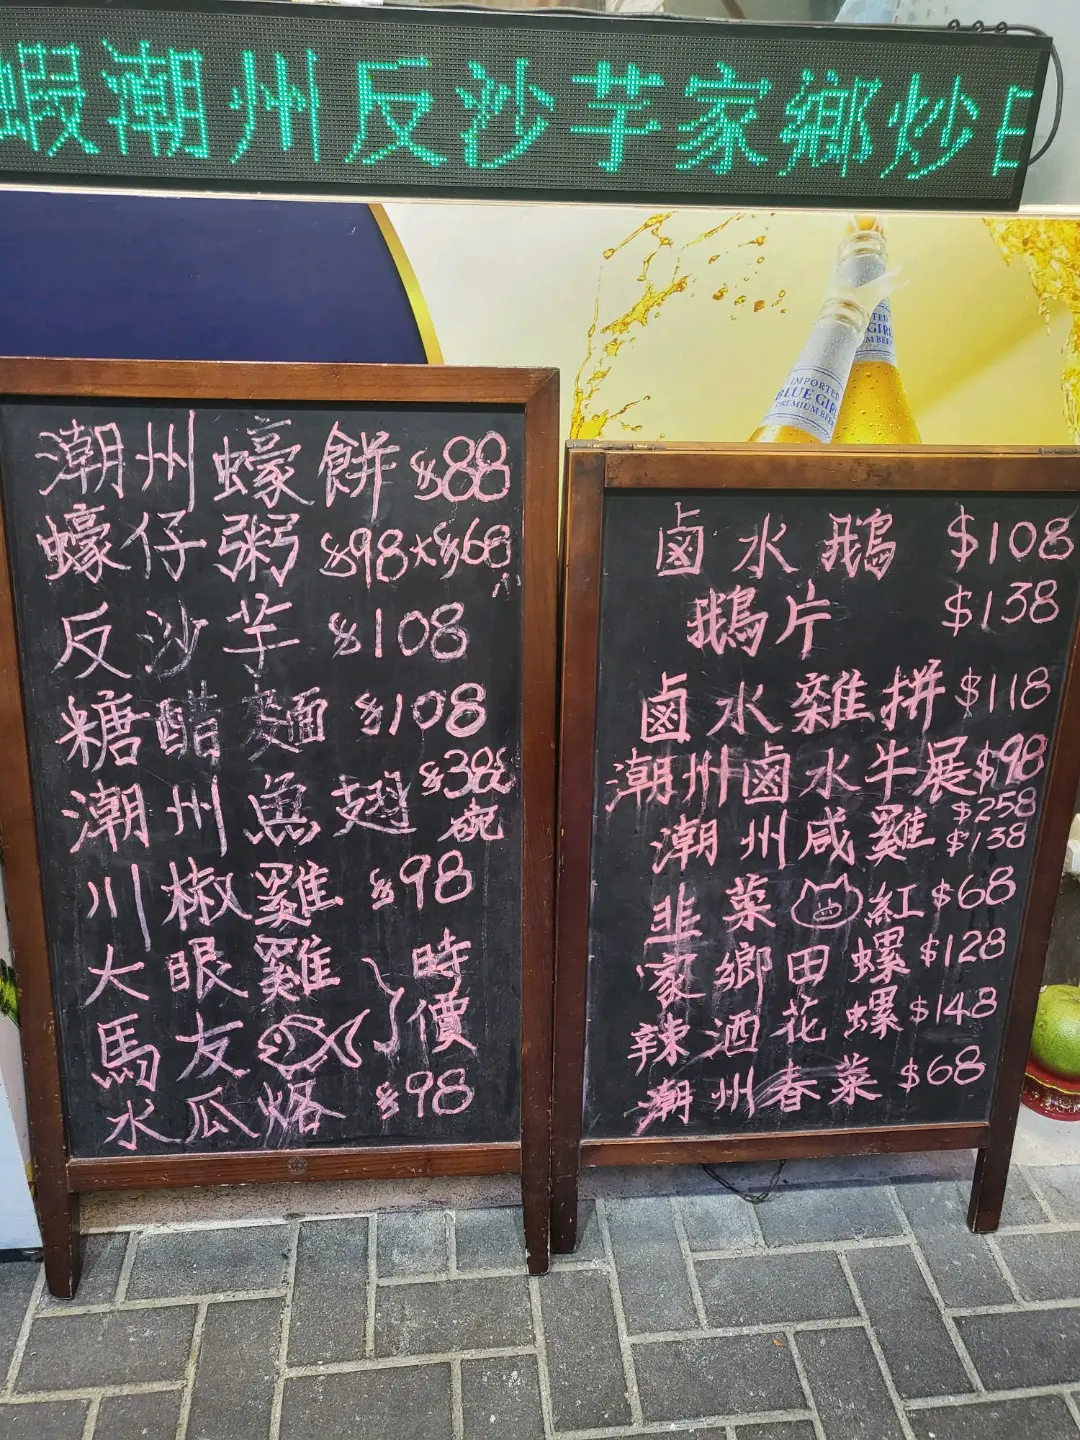 蝦潮州反沙芋家鄉炒
IMPORTED
BLUE GIRL
PREMIUM BEER
潮州蠔餅 $88
蠔仔粥 $98大$68小
反沙芋 $108
糖醋麵 $108
潮州魚翅 $38碗
川椒雞 $98
大眼雞
馬友
時價
水瓜烙 $98
鹵水鵝 $108
鵝片 $138
鹵水雜拼 $118
潮州鹵水牛展 $98
潮州咸雞 $258 $138
韭菜紅 $68
家鄉田螺 $128
辣酒花螺 $148
潮州春菜 $68